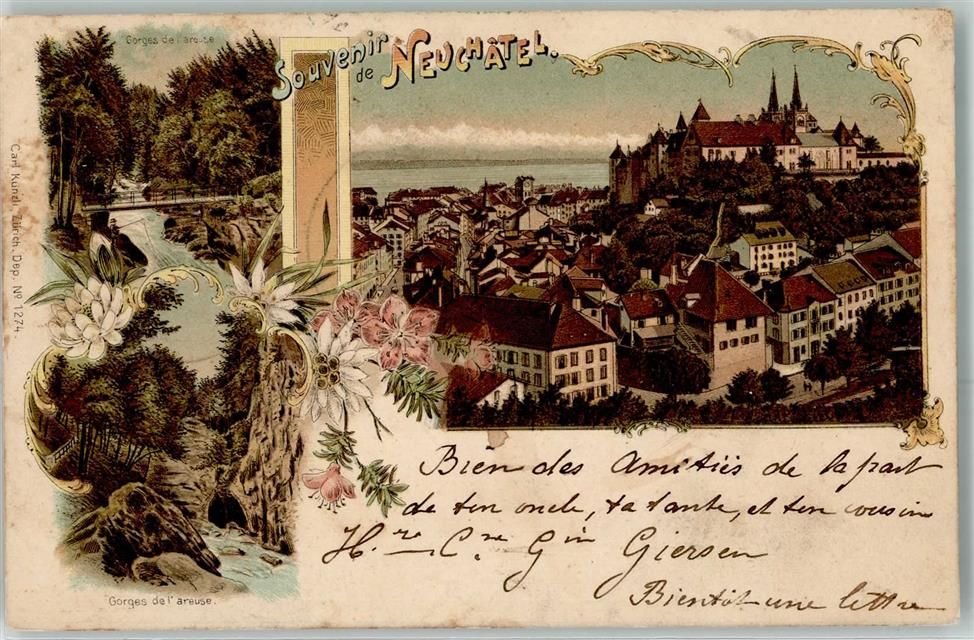 Gorges de l'areuse
Souvenir
de NEUCHÂTEL.
Carl Künzli, Zürich, Dep. No 1274.
Gorges de l'areuse.
Bien des Amitiés de la part
de ton oncle, ta tante, et ton cousin
Hre Cne Gin Giersen
Bientôt une lettre